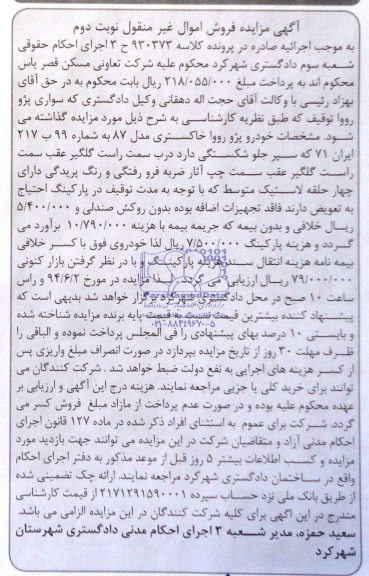 آگهی مزایده فروش اموال غیر منقول نوبت دوم
به موجب اجرائیه صادره در پرونده کلاسه ۹۳۰۳۷۳ ح ۳ اجرای احکام حقوقی
شعبه سوم دادگستری شهرکرد محکوم علیه شرکت تعاونی مسکن قصر یاس
محکوم اند به پرداخت مبلغ ۲۱۸/۰۵۵/۰۰۰ ریال بابت محکوم به در حق آقای
بهزاد رئیسی با وکالت آقای حجت اله دهقانی وکیل دادگستری که سواری پژو
رووا توقیف که طبق نظریه کارشناسی به شرح ذیل مورد مزایده گذاشته می
شود. مشخصات خودرو پژو رووا خاکستری مدل ۸۷ به شماره ۹۹ ب ۲۱۷
ایران ۷۱ که سپر جلو شکستگی دارد درب سمت راست گلگیر عقب سمت
راست گلگیر عقب سمت چپ آثار ضربه فرو رفتگی و رنگ پریدگی دارای
چهار حلقه لاستیک متوسط که با توجه به مدت توقیف در پارکینگ احتیاج
به تعویض دارند فاقد تجهیزات اضافه بوده بدون روکش صندلی و ۵/۴۰۰/۰۰۰
ریال خلافی و بدون بیمه که جریمه بیمه با هزینه ۱۰/۷۹۰/۰۰۰ برآورد می
گردد و هزینه پارکینگ ۷/۵۰۰/۰۰۰ ریال لذا خودروی فوق با کسر خلافی
بیمه نامه هزینه انتقال سند هزینه پارکینگ و با در نظر گرفتن بازار کنونی
۷۹/۰۰۰/۰۰۰ ریال ارزیابی می گردد. لذا مزایده در مورخ ۹۴/۶/۲ و راس
ساعت ۱۰ صبح در محل دادگستری شهرکرد برگزار خواهد شد بدیهی است که
پیشنهاد کننده بیشترین قیمت نسبت به قیمت پایه برنده مزایده شناخته شده
و بایستی ۱۰ درصد بهای پیشنهادی را فی المجلس پرداخت نموده و الباقی را
ظرف مهلت ۳۰ روز از تاریخ مزایده بپردازد در صورت انصراف مبلغ واریزی پس
از کسر هزینه های اجرایی به نفع دولت ضبط خواهد شد. شرکت کنندگان می
توانند برای خرید کلی یا جزیی مراجعه نمایند. هزینه درج این آگهی و ارزیابی بر
عهده محکوم علیه بوده و در صورت عدم پرداخت از مازاد مبلغ فروش کسر می
گردد شرکت برای عموم به استثنای افراد ذکر شده در ماده ۱۲۷ قانون اجرای
احکام مدنی آزاد و متقاضیان شرکت در این مزایده می توانند جهت بازدید مورد
مزایده و کسب اطلاعات بیشتر ۵ روز قبل از موعد مذکور به دفتر اجرای احکام
واقع در ساختمان دادگستری شهرکرد مراجعه نمایند. ارائه چک تضمینی شده
از طریق بانک ملی نزد حساب سپرده ۲۱۷۱۲۹۱۵۹۰۰۰۱ از قیمت کارشناسی
مندرج در این اگهی برای کلیه شرکت کنندگان در این مزایده الزامی می باشد.
سعید حمزه، مدیر شعبه ۳ اجرای احکام مدنی دادگستری شهرستان
شهرکرد
ParsNamadData
۰۲۱-۸۸۳۴۹۶۷۰-۵